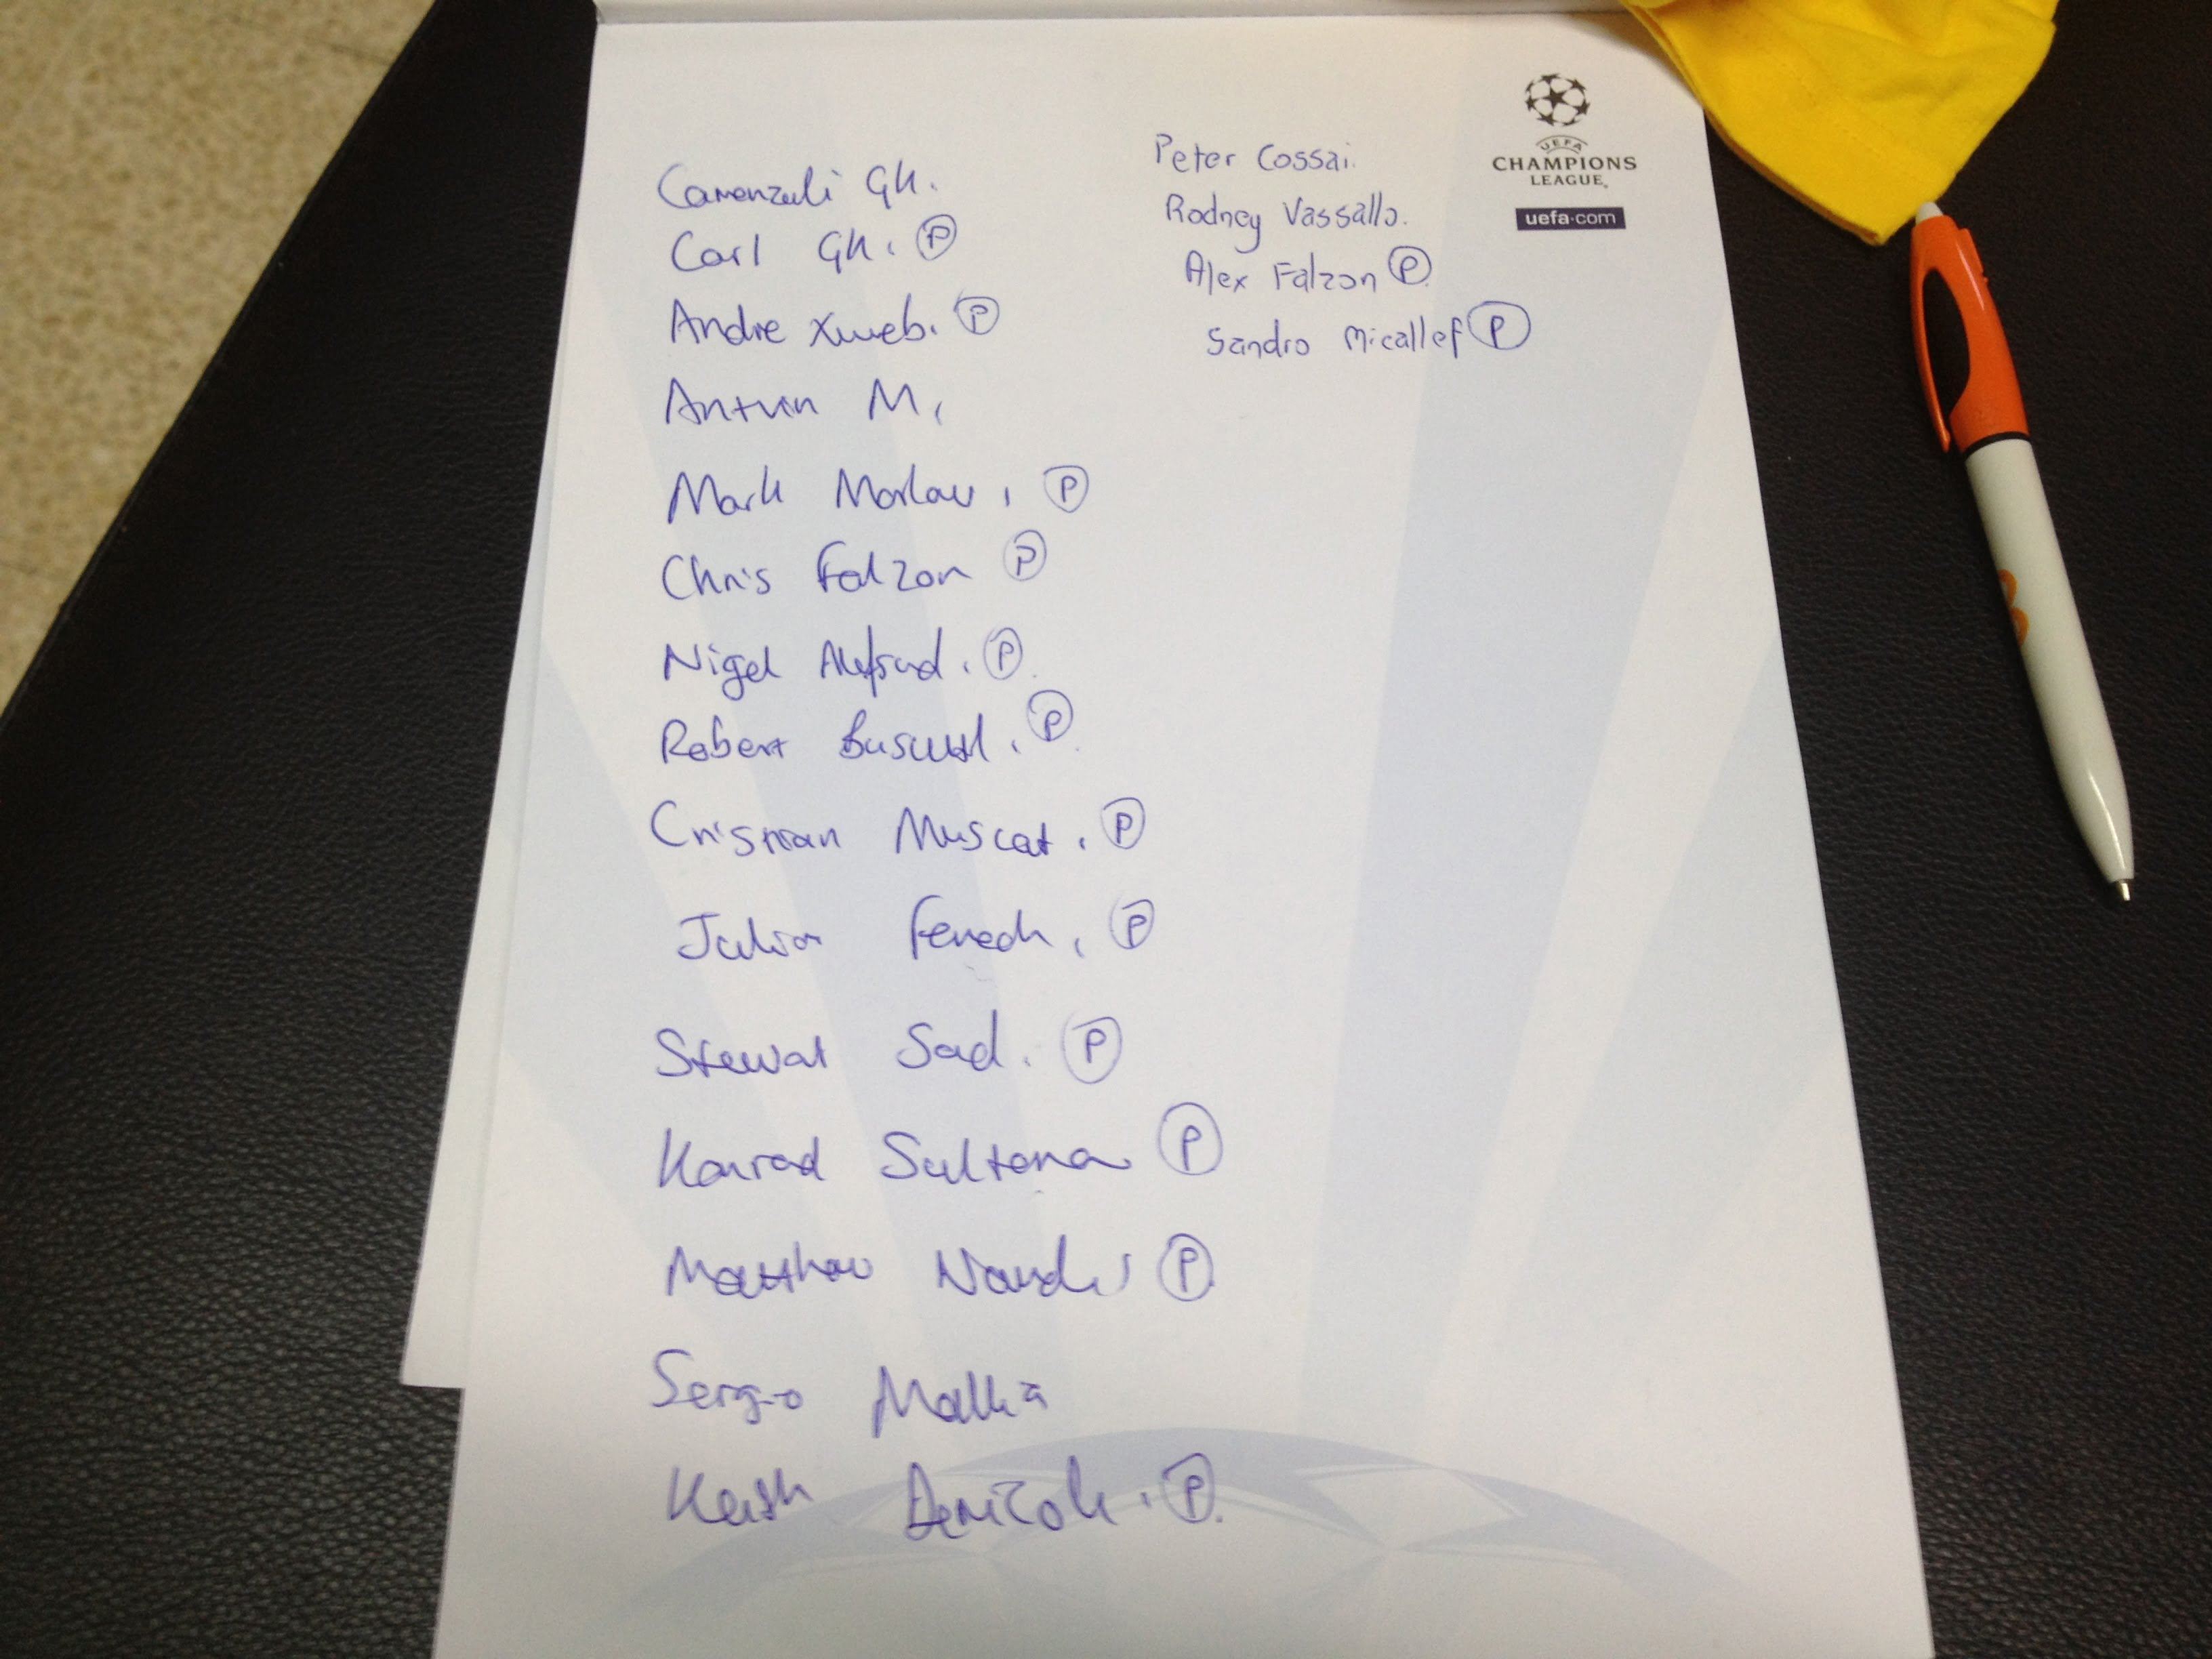 Camenzuli Gk.
Carl Gk. P
Andre Xuereb. P
Antvin M.
Mark P
Chris Falzon P
Nigel P
Robert P
Cristian Muscat. P
Julian Fenech. P
Stewat Said. P
Konrad Sultana P
Matthew P
Sergio Mallia
Keith P
Peter Cossai.
Rodney Vassallo.
Alex Falzon P
Sandro Micallef P
UEFA
CHAMPIONS
LEAGUE
uefa.com